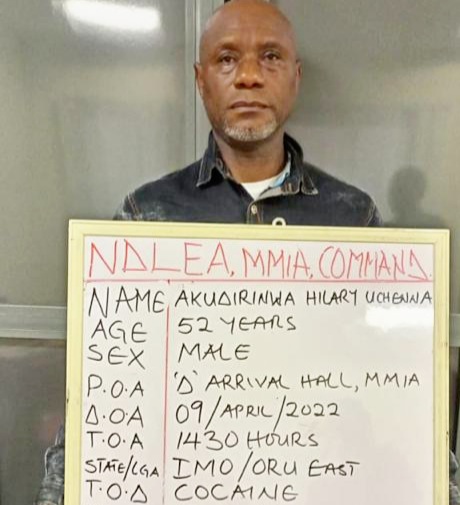 NDLEA, MMIA, COMMAND.
NAME AKUDIRINWA HILARY UCHENNA
AGE 52 YEARS
SEX MALE
P.O.A 'D' ARRIVAL HALL, MMIA
D.O.A 09/APRIL/2022
T.O.A 1430 HOURS
STATE/LGA IMO/ORU EAST
T.O.D COCAINE